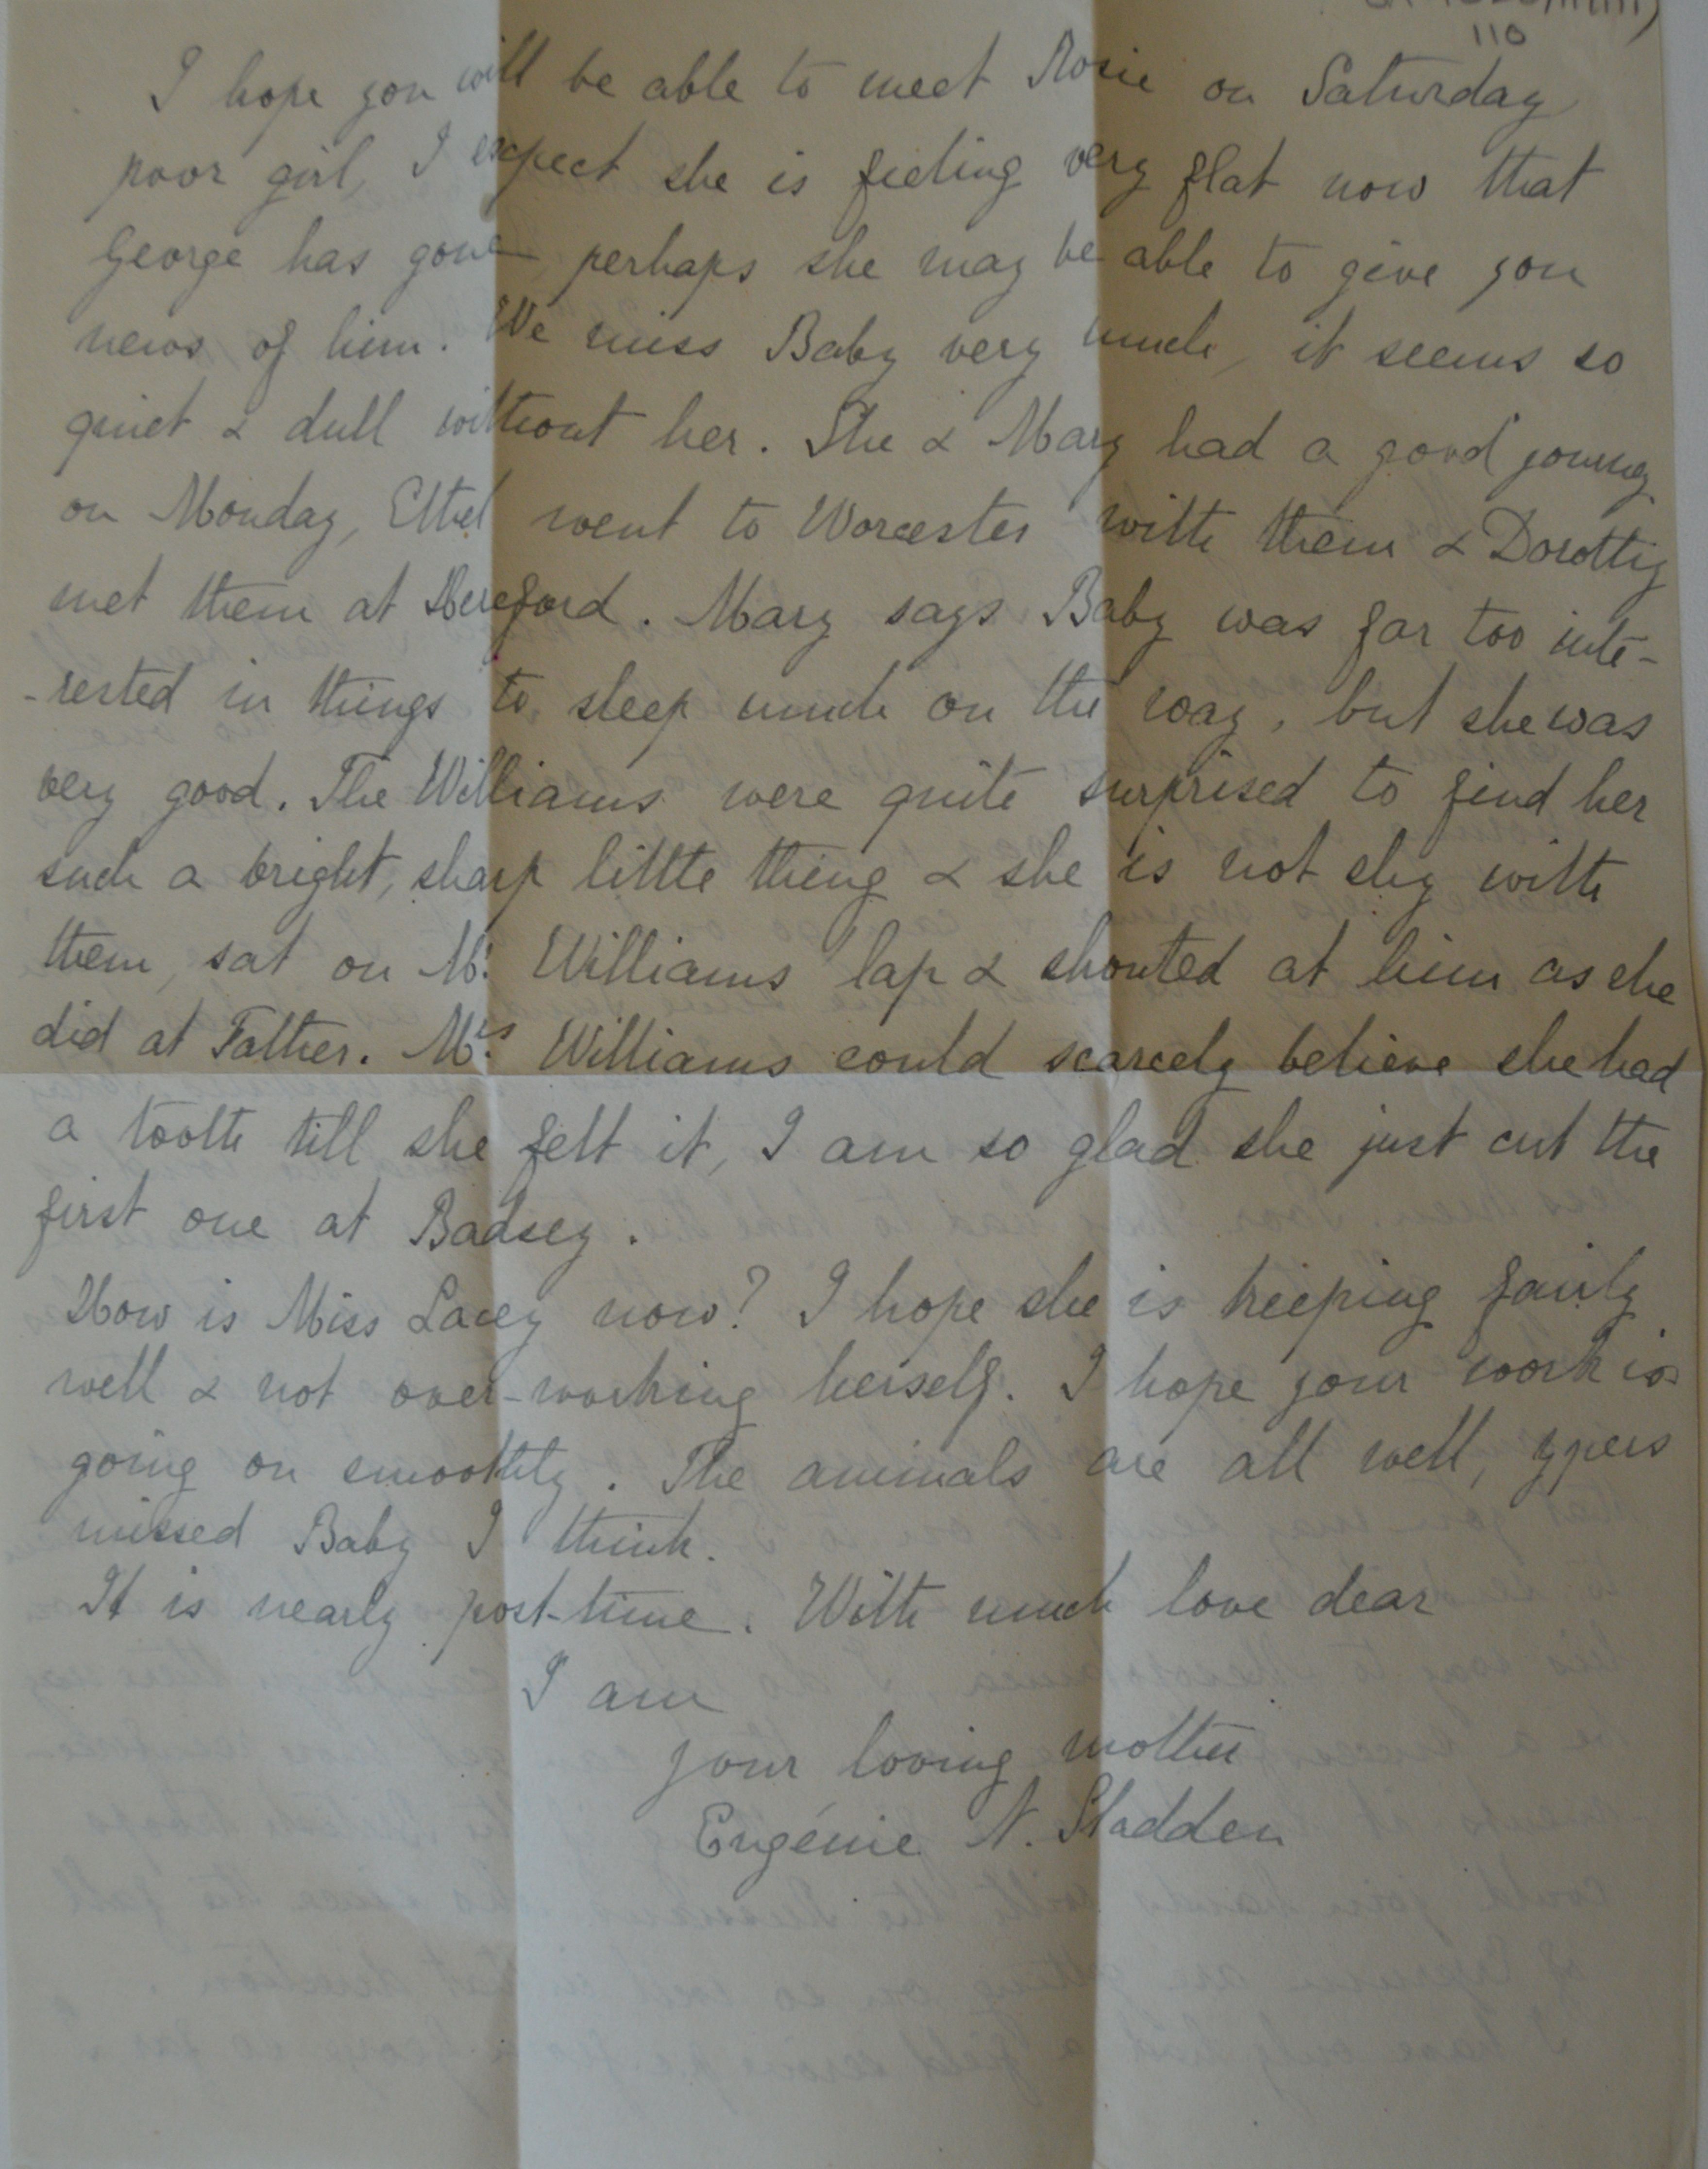 110
I hope you will be able to meet Rosie on Saturday
poor girl, I expect she is feeling very flat now that
George has gone perhaps she may be able to give you
news of him. We miss Baby very much, it seems so
quiet & dull without her. She & Mary had a good journey
on Monday, Ethel went to Worcester with them & Dorothy
met them at Hereford. Mary says Baby was far too inte-
-rested in things to sleep much on the way, but she was
very good. The Williams were quite surprised to find her
such a bright, sharp little thing & she is not shy with
them, sat on Mr. Williams lap & shouted at him as she
did at Father. Mrs. Williams could scarcely believe she had
a tooth till she felt it, I am so glad she just cut the
first one at Badsey.
How is Miss Lacey now? I hope she is keeping fairly
well & not over-working herself. I hope your work is
going on smoothly. The animals are all well, ypers
missed Baby I think.
It is nearly post-time. With much love dear
I am
your loving mother
Eugénie N. Sladden